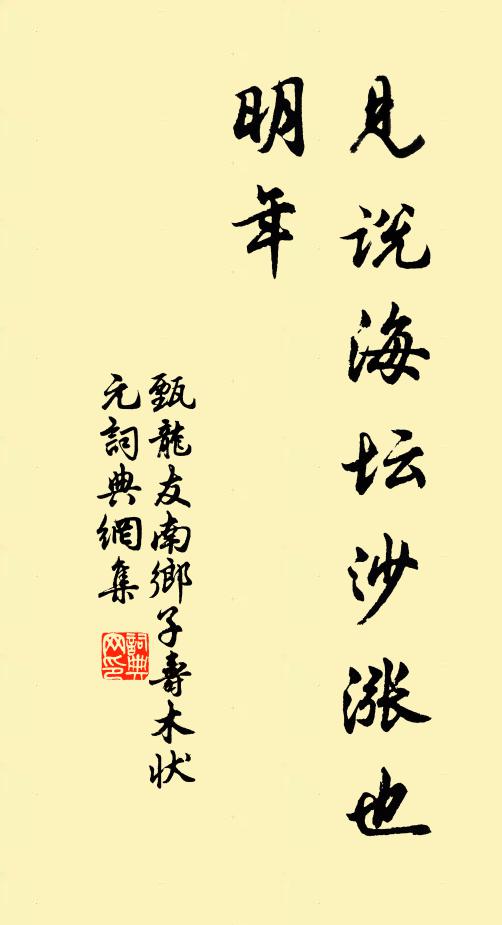 见说海坛沙涨也
明年
甄龍友南鄉子壽木状
元詞典網集
詞典
网印